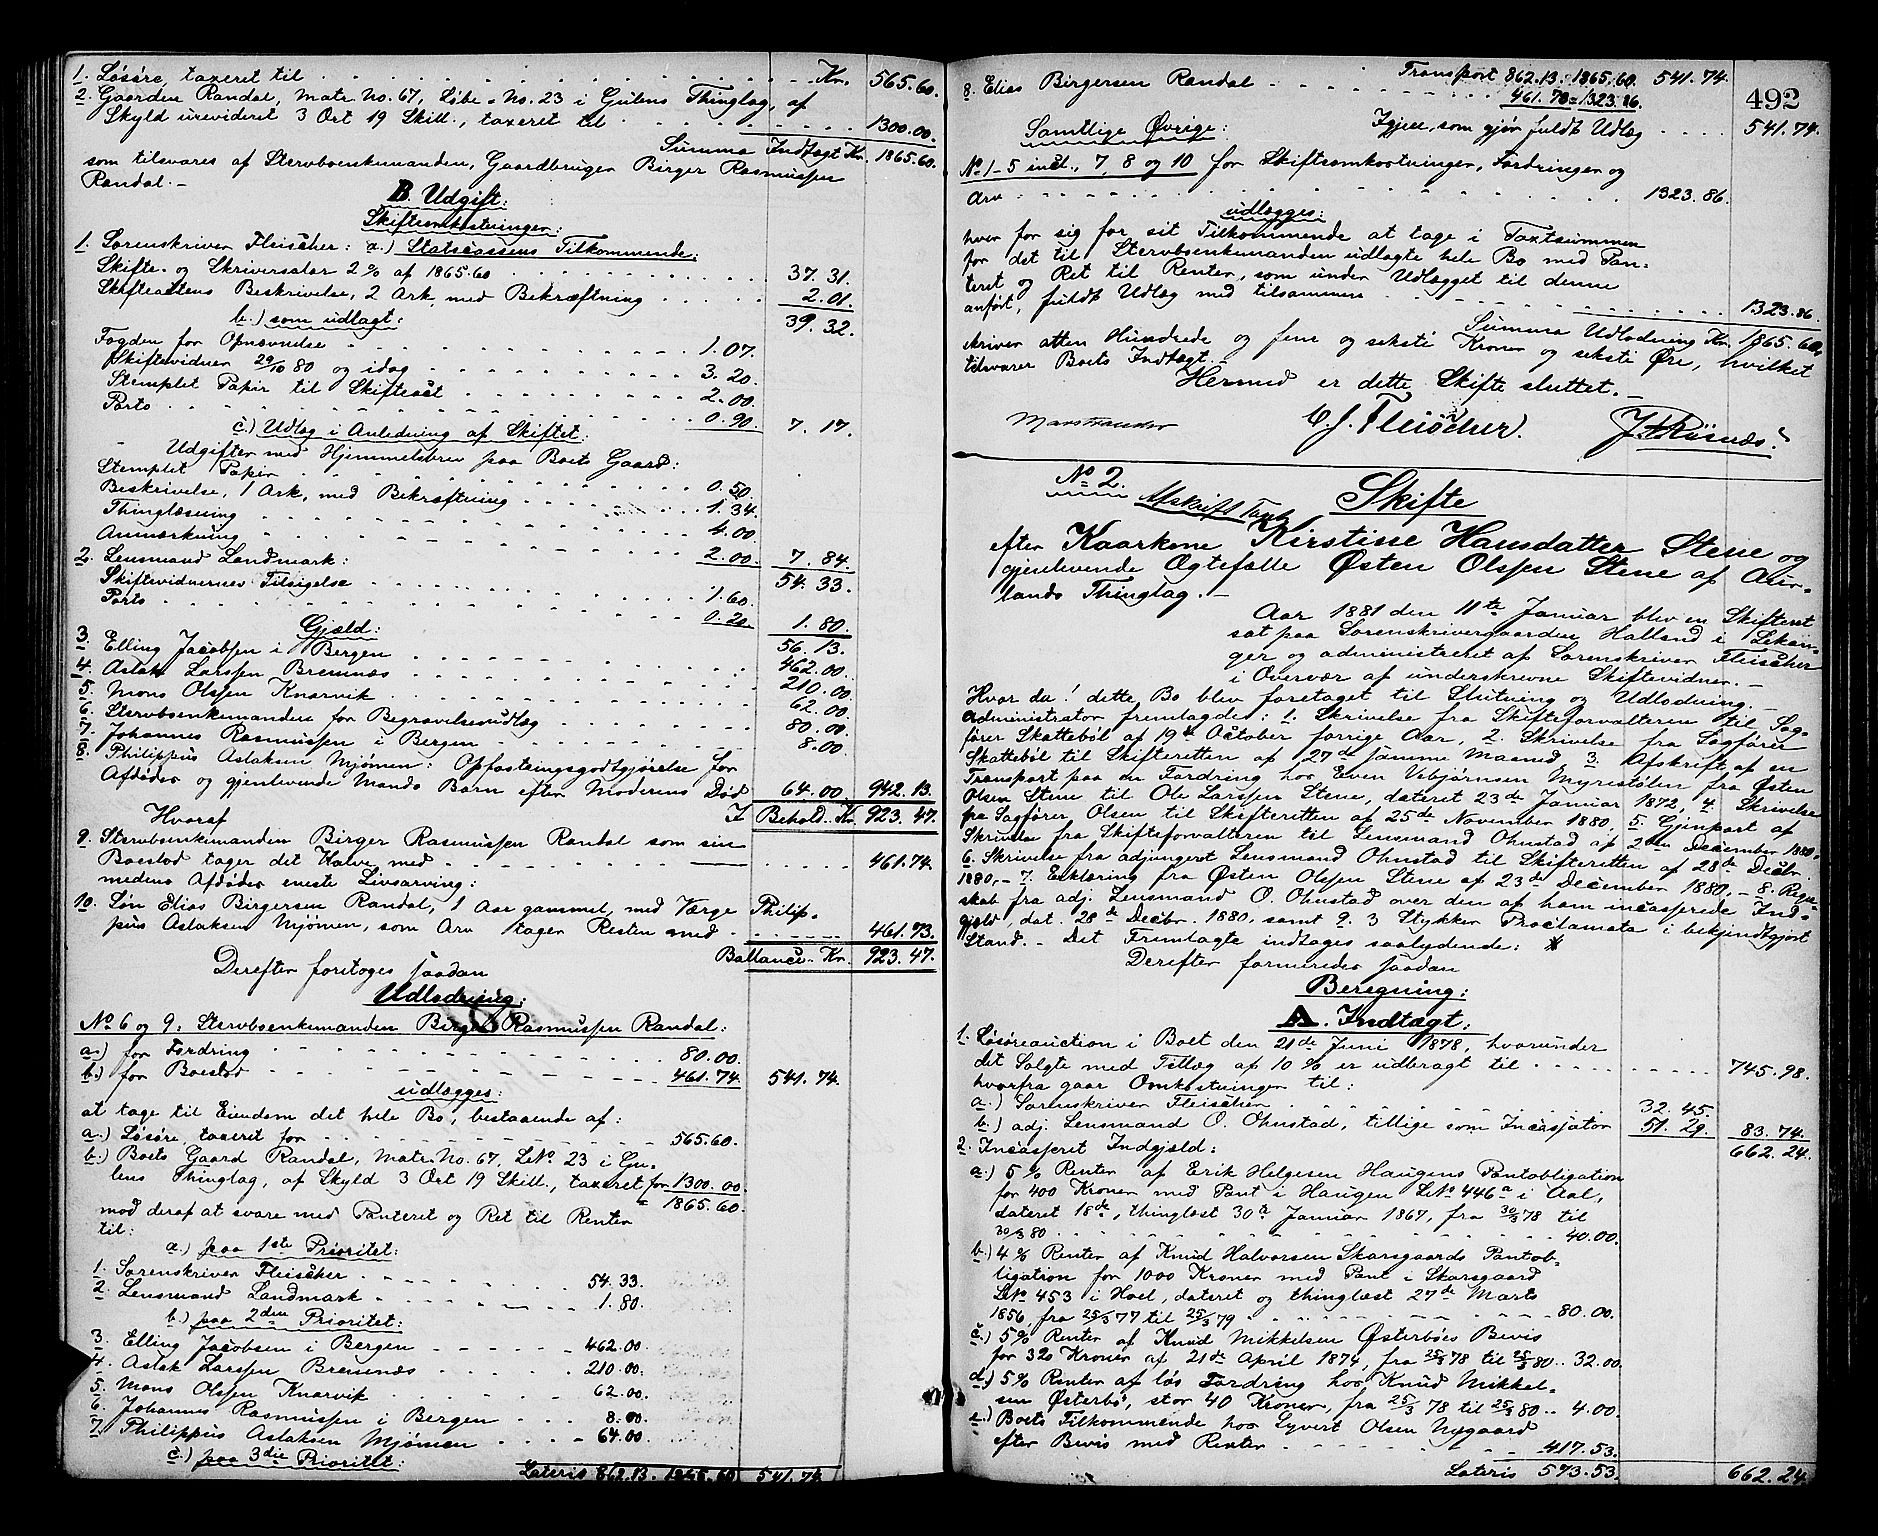 1. Løsøre, taxeret til . . . Kr. 565.60.
2. Gaarden Randal, Matr. No. 67, Løbe-No. 23 i Gulens Thinglag, af
Skyld urevideret 3 Ort 19 Skill., taxeret til . . . 1300.00.
Summa Indtægt Kr. 1865.60.
som tilsvares af Stervboenkemanden, Gaardbruger Birger Rasmussen
Randal. –
B. Udgift:
Skifteomkostninger:
1. Sorenskriver Fleischer: a.) Statscassens Tilkommende:
Skifte- og Skriversalær 2 % af 1865.60 . . . 37.31.
Skifteactens Beskrivelse, 2 Ark, med Bekræftning . . . 2.01.
b.) som udlagt: 39.32.
Fogden for Opnævnelse . . . 1.07.
Skiftevidner 29/10 80 og idag . . . 3.20.
Stemplet Papir til Skifteact . . . 2.00.
Porto . . . 0.90. 7.17.
c.) Udlæg i Anledning af Skiftet:
Udgifter med Hjemmelsbrev paa Boets Gaard:
Stemplet Papir . . . 0.50.
Beskrivelse, 1 Ark, med Bekræftning . . . 1.34.
Thinglæsning . . . 4.00.
Anmærkning . . . 2.00. 7.84.
2. Lensmand Landmark: 54.33.
Skiftevidnernes Tilsigelse . . . 1.60.
Porto . . . 0.20. 1.80.
Gjæld: 56.13.
3. Elling Jacobsen i Bergen . . . 462.00.
4. Aslak Larssen Bremnæs . . . 210.00.
5. Mons Olsen Knarvik . . . 62.00.
6. Stervboenkemanden for Begravelsesudlæg . . . 80.00.
7. Johannes Rasmussen i Bergen . . . 8.00.
8. Philippus Aslaksen Mjømen: Opfostringsgodtgjørelse for
Afdødes og gjenlevende Mands Barn efter Moderens Død 64.00. 942.13.
Hvoraf I Behold Kr. 923.47.
9. Stervboenkemanden Birger Rasmussen Randal som sin
Boeslod tager det Halve med . . . 461.74.
medens Afdødes eneste Livsarving:
10. Søn Elias Birgersen Randal, 1 Aar gammel, med Værge Philip-
pus Aslaksen Mjømen, som Arv tager Resten med . . . 461.73.
Ballance Kr. 923.47.
Derefter foretoges saadan
Udlodning:
No 6 og 9: Stervboenkemanden Birger Rasmussen Randal:
a.) for Fordring . . . 80.00.
b.) for Boeslod . . . 461.74. 541.74.
udlægges:
at tage til Eiendom det hele Bo, bestaaende af:
a.) Løsøre, taxeret for . . . 565.60.
b.) Boets Gaard Randal, Matr. No. 67, LNo. 23 i Gu-
lens Thinglag, af Skyld 3 Ort 19 Skill., taxeret for 1300.00.
1865.60.
mod deraf at svare med Panteret og Ret til Renter
til:
a.) paa 1ste Prioritet:
1. Sorenskriver Fleischer . . . 54.33.
2. Lensmand Landmark . . . 1.80.
b.) paa 2den Prioritet:
3. Elling Jacobsen i Bergen . . . 462.00.
4. Aslak Larssen Bremnæs . . . 210.00.
5. Mons Olsen Knarvik . . . 62.00.
6. Johannes Rasmussen i Bergen . . . 8.00.
7. Philippus Aslaksen Mjømen . . . 64.00.
c.) paa 3die Prioritet:
Lateris 862.13. 1865.60. 541.74.
492
Transport 862.13. 1865.60. 541.74.
8. Elias Birgersen Randal . . . 461.73 = 1323.86.
Samtlige Øvrige: Igjen, som gjør fuldt Udlæg . . . 541.74.
No 1–5 incl., 7, 8 og 10 for Skifteomkostninger, Fordringer og
Arv . . . 1323.86.
udlægges:
hver for sig for sit Tilkommende at tage i Taxtsummen
for det til Stervboenkemanden udlagte hele Bo med Pan-
teret og Ret til Renter, som under Udlægget til denne
anført, fuldt Udlæg med tilsammen . . . 1323.86.
Summa Udlodning Kr. 1865.60,
skriver atten Hundrede og fem og seksti Kroner og seksti Øre, hvilket
tilsvarer Boets Indtægt. –
Hermed er dette Skifte sluttet. –
Marstrander C. J. Fleischer.
No 2. Skifte
Afskrift
efter Kaarkone Kirstine Hansdatter Stene og
gjenlevende Ægtefælle Østen Olssen Stene af Aur-
lands Thinglag. –
Aar 1881 den 11te Januar blev en Skifteret
sat paa Sorenskrivergaarden Halland i Lekan-
ger og administreret af Sorenskriver Fleischer
i Overvær af underskrevne Skiftevidner. –
Hvor da! dette Bo blev foretaget til Slutning og Udlodning. –
Administrator fremlagde: 1. Skrivelse fra Skifteforvalteren til Sag-
fører Skattebøl af 19de October forrige Aar, 2. Skrivelse fra Sagfører
Skattebøl til Skifteretten af 27de samme Maaned 3. Afskrift af en
Transport paa en Fordring hos Even Vebjørnsen Myrestølen fra Østen
Olsen Stene til Ole Larssen Stene, dateret 23de Januar 1872, 4. Skrivelse
fra Sagfører Olsen til Skifteretten af 25de November 1880, 5. Gjenpart af
Skrivelse fra Skifteforvalteren til Lensmand Ohnstad af 2den December 1880.
6. Skrivelse fra adjungeret Lensmand Ohnstad til Skifteretten af 28de Decbr.
1880, – 7. Erklæring fra Østen Olssen Stene af 23de December 1880, – 8. Regn-
skab fra adj. Lensmand O. Ohnstad over den af ham incasserede Ind-
gjæld, dat. 28de Decbr. 1880, samt 9. 3 Stykker Proclamata i bekjendtgjort
Stand. – Det Fremlagte indtages saalydende:
Derefter formeredes saadan
Beregning:
A. Indtægt:
1. Løsøreauction i Boet den 21de Juni 1878, hvorunder
det Solgte med Tillæg af 10 % er udbragt til . . . 745.98.
hvorfra gaar Omkostninger til:
a.) Sorenskriver Fleischer . . . 32.45.
b.) adj. Lensmand O. Ohnstad, tillige som Incassator 51.29. 83.74.
2. Incasseret Indgjæld: 662.24.
a.) 5 % Renter af Erik Helgesen Haugens Pantobligation
for 400 Kroner med Pant i Haugen LNo 446a i Aal,
dateret 18de, thinglæst 30te Januar 1867, fra 30/3 78 til
30/3 80 . . . 40.00.
b.) 4 % Renter af Knud Halvorsen Skarsgaards Pantob-
ligation for 1000 Kroner med Pant i Skarsgaard
LNo 453 i Hoel, dateret og thinglæst 27de Marts
1856, fra 25/3 77 til 25/3 79 . . . 80.00.
c.) 5 % Renter af Knud Mikkelsen Østerbøes Bevis
for 320 Kroner af 21de April 1874, fra 25/3 78 til 25/3 80 . . 32.00.
d.) 5 % Renter af løs Fordring hos Knud Mikkel-
sen Østerbø, stor 40 Kroner, fra 25/3 78 til 25/3 80 . . 4.00.
e.) Boets Tilkommende hos Syvert Olsen Nygaard
efter Bevis med Renter . . . 417.53.
Lateris 573.53. 662.24.